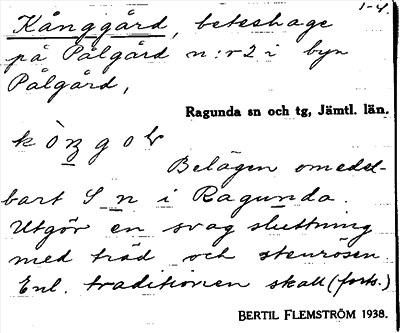 Kånggård, beteshage 1-4.
på Pålgård n:r 2 i byn
Pålgård,
Ragunda sn och tg, Jämtl. län.
Belägen omedel-
bart S n i Ragunda.
Utgör en svag sluttning
med träd och stenrösen.
Enl. traditionen skall (forts.)
BERTIL FLEMSTRÖM 1938.